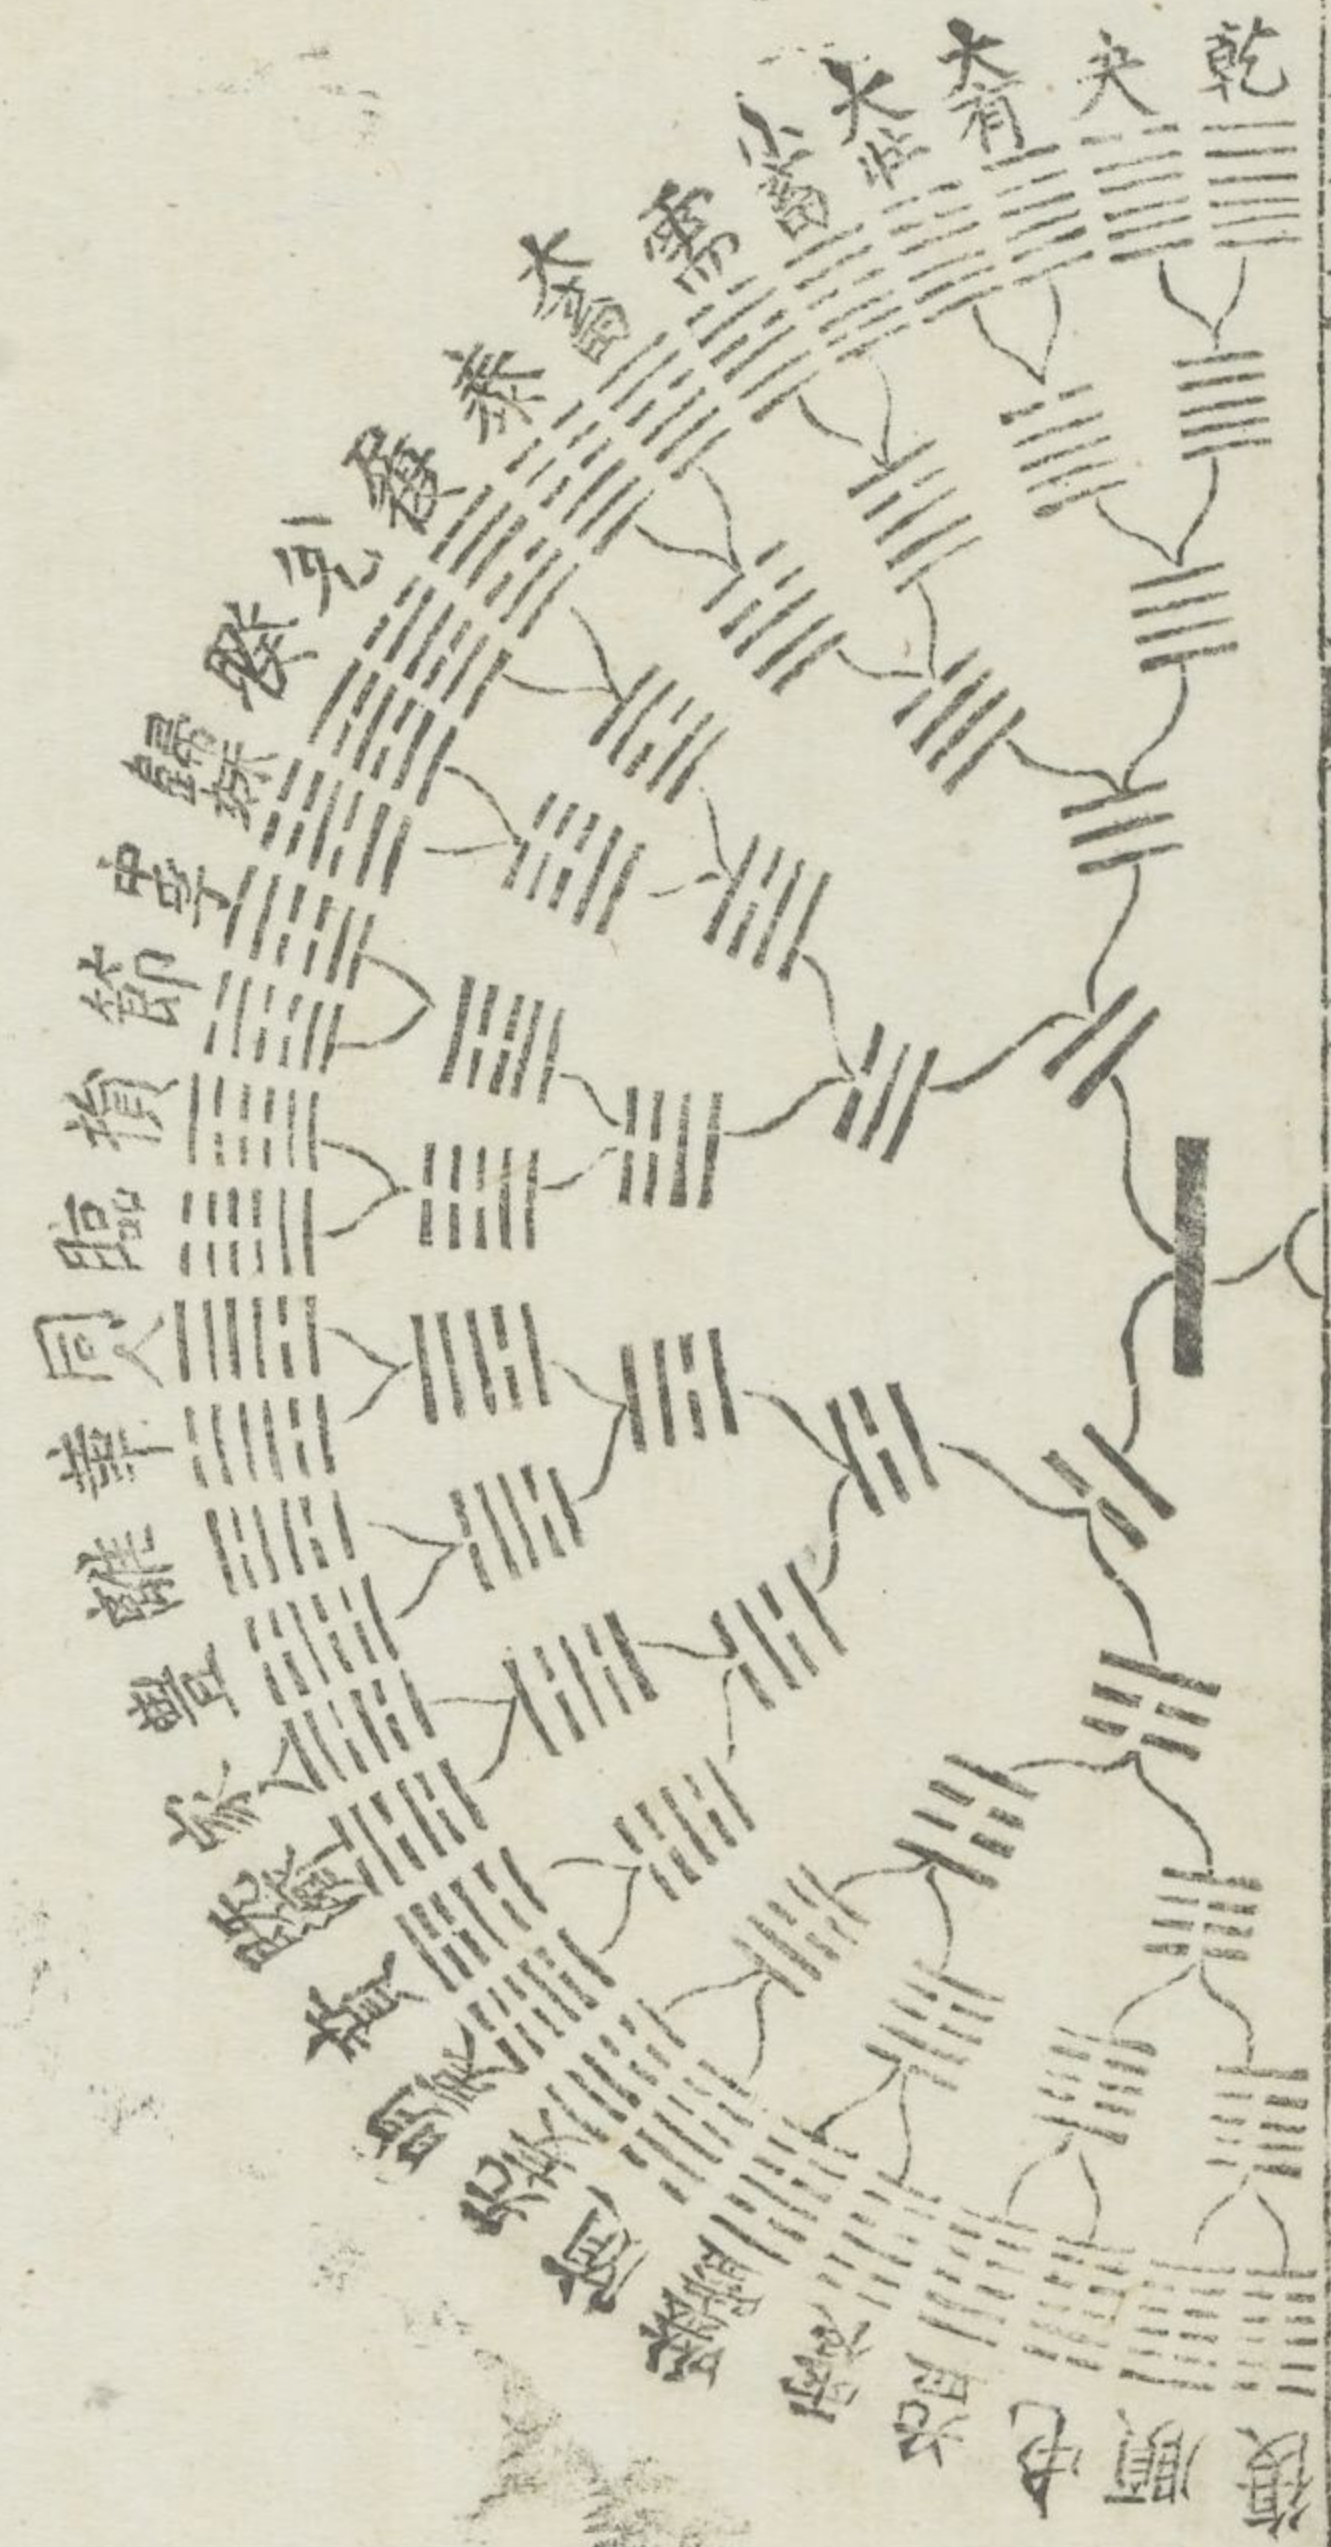 乾
夬
大有
大壯
小畜
需
大畜
泰
履
兌
睽
歸妹
中孚
節
損
臨
同人
革
離
豊
家人
既濟
賁
明夷
无妄
隨
噬嗑
震
益
屯
頤
復